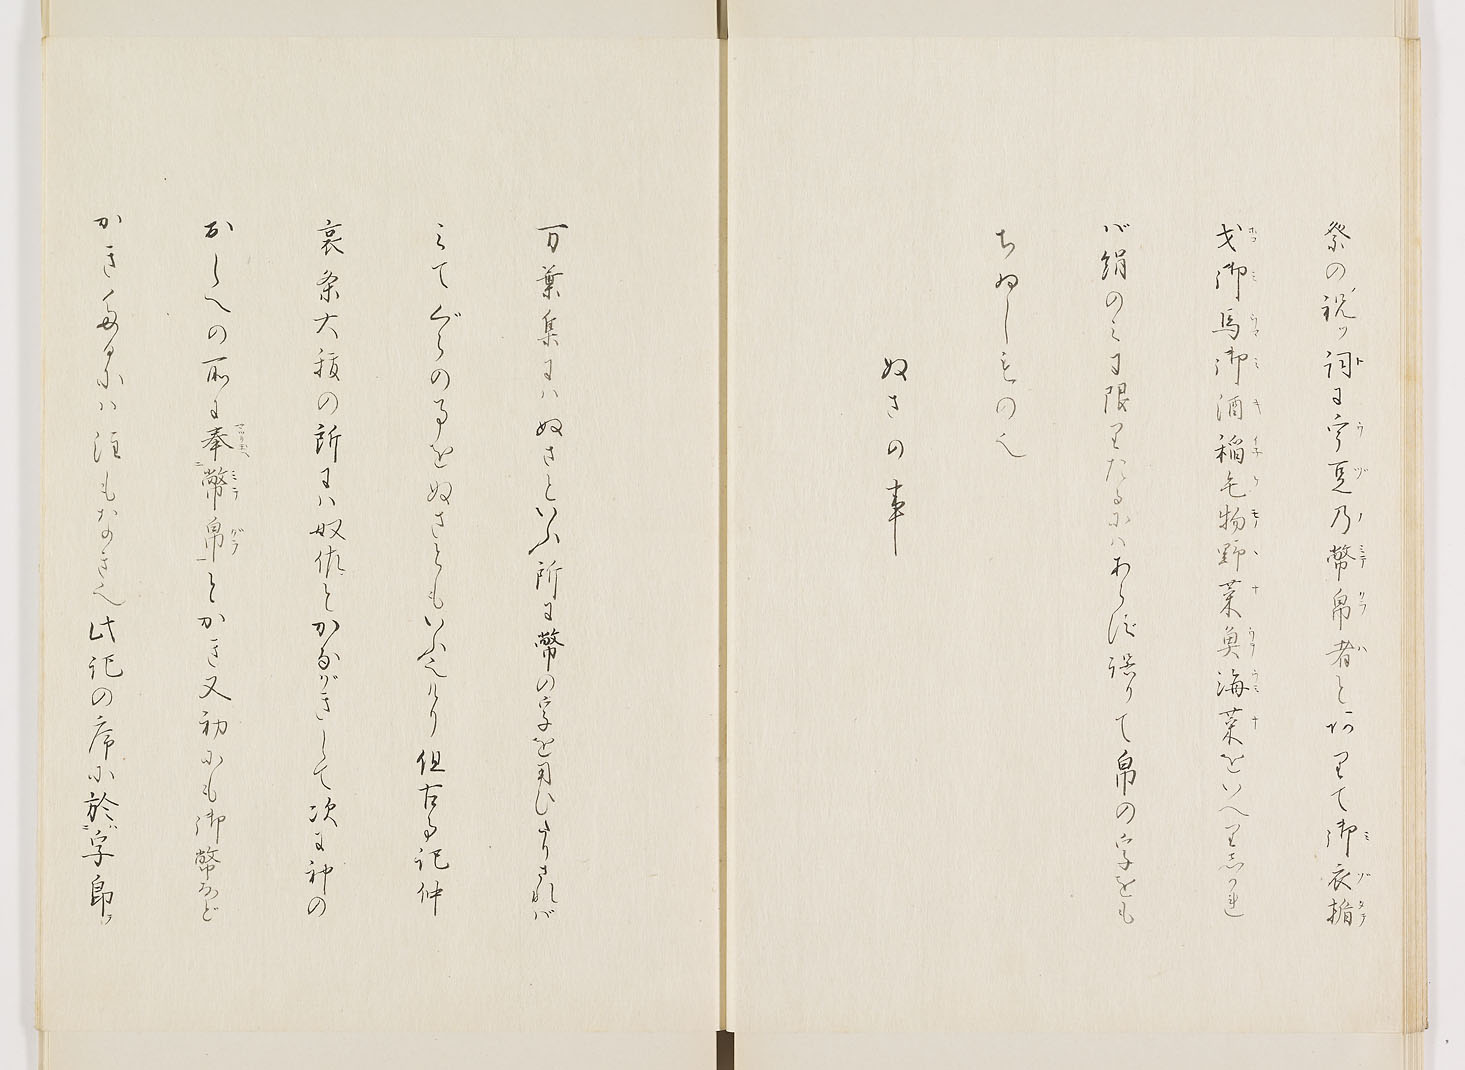 祭の祝ッ詞に宇豆乃幣帛者とありて御衣楯
戈御馬御酒稲毛物野菜魚海菜をいへりしかれ
バ絹のミに限りたるにハあらず誤りて帛の字をも
ちゐしもの也
ぬさの事
万葉集にハぬさといふ所に幣の字を用ひたりされバ
ミてぐらの事をぬさともいふ也けり但古事記仲
哀条大祓の所にハ奴佐とかながきして次に神の
おしへの所に奉幣帛とかき又初にも御幣など
かきたるにハ注もなき也此記の序に於字即